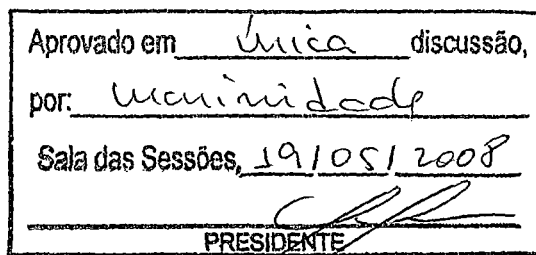 Aprovado em única discussão,
por: unanimidade
Sala das Sessões, 19/05/2008
PRESIDENTE